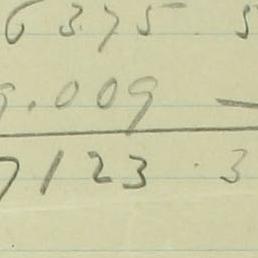 6 3.75 5
9.009 —
7123.3